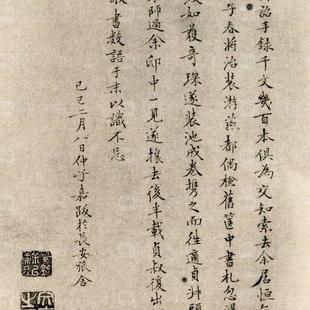 詒手録千文幾百本俱為交知索去余居恒
子春將治装游燕都偶檢舊篋中書札忽
如獲奇琛遂装池成卷携之而往適貞叔頭
師過余邸中一見遂攘去後半載貞叔復出
書数語于末以識不忘
己巳二月八日仲子嘉跋於長安旅舍